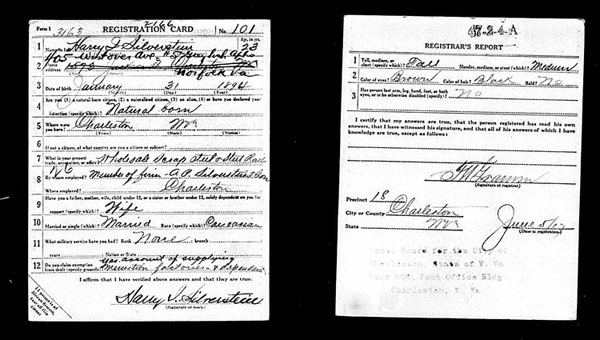 3166
Form 1 3163 REGISTRATION CARD No. 101
1 Name in full Harry I Silverstein Age, in yrs. 23
405 Westover Ave.
2 Norfolk Va
3 Date of birth January 31 1894
(Month) (Day) (Year)
4 Are you (1) a natural-born citizen, (2) a naturalized citizen, (3) an alien, (4) or have you declared your
intention (specify which)? Natural born
5 Where were you born? Charleston W Va
(Town) (State) (Nation)
6 If not a citizen, of what country are you a citizen or subject?
7 What is your present trade, occupation, or office? Wholesale Scrap Steel & Steel Rail
8 By whom employed? Member of firm - A.P. Silverstein & Son
Where employed? Charleston
9 Have you a father, mother, wife, child under 12, or a sister or brother under 12, solely dependent on you for
support (specify which)? Wife
10 Married or single (which)? Married Race (specify which)? Caucasian
11 What military service have you had? Rank None branch
years Nation or State
12 Do you claim exemption from draft (specify grounds)? Yes, account of supplying
munition
I affirm that I have verified above answers and that they are true.
Harry I. Silverstein
(Signature or mark)
47-2-4-A
REGISTRAR'S REPORT
1 Tall, medium, or short (specify which)? Tall Slender, medium, or stout (which)? Medium
2 Color of eyes? Brown Color of hair? Black Bald? No
3 Has person lost arm, leg, hand, foot, or both
eyes, or is he otherwise disabled (specify)? No
I certify that my answers are true, that the person registered has read his own
answers, that I have witnessed his signature, and that all of his answers of which I have
knowledge are true, except as follows:
(Signature of registrar)
Precinct 18
City or County Charleston
State W Va June 5/17
(Date of registration)
Local Board for the City of
Charleston, State of W. Va
Post Office Bldg
Charleston, W. Va